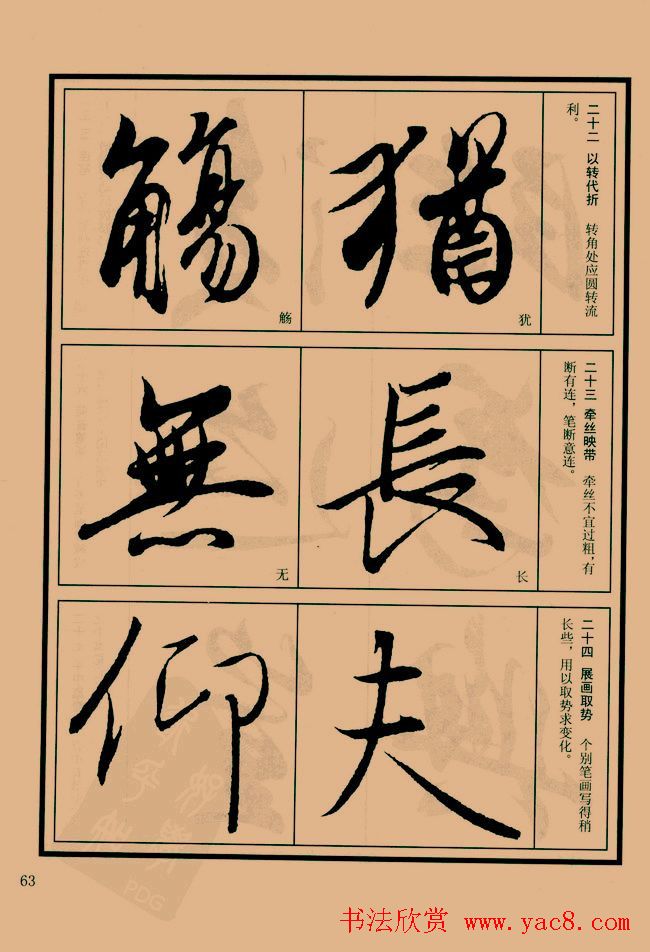 二十二 以转代折 转角处应圆转流
利。
猶
犹
觴
觞
二十三 牵丝映带 牵丝不宜过粗,有
断有连,笔断意连。
長
长
無
无
二十四 展画取势 个别笔画写得稍
长些,用以取势求变化。
夫
仰
63
PDG
书法欣赏 www.yac8.com